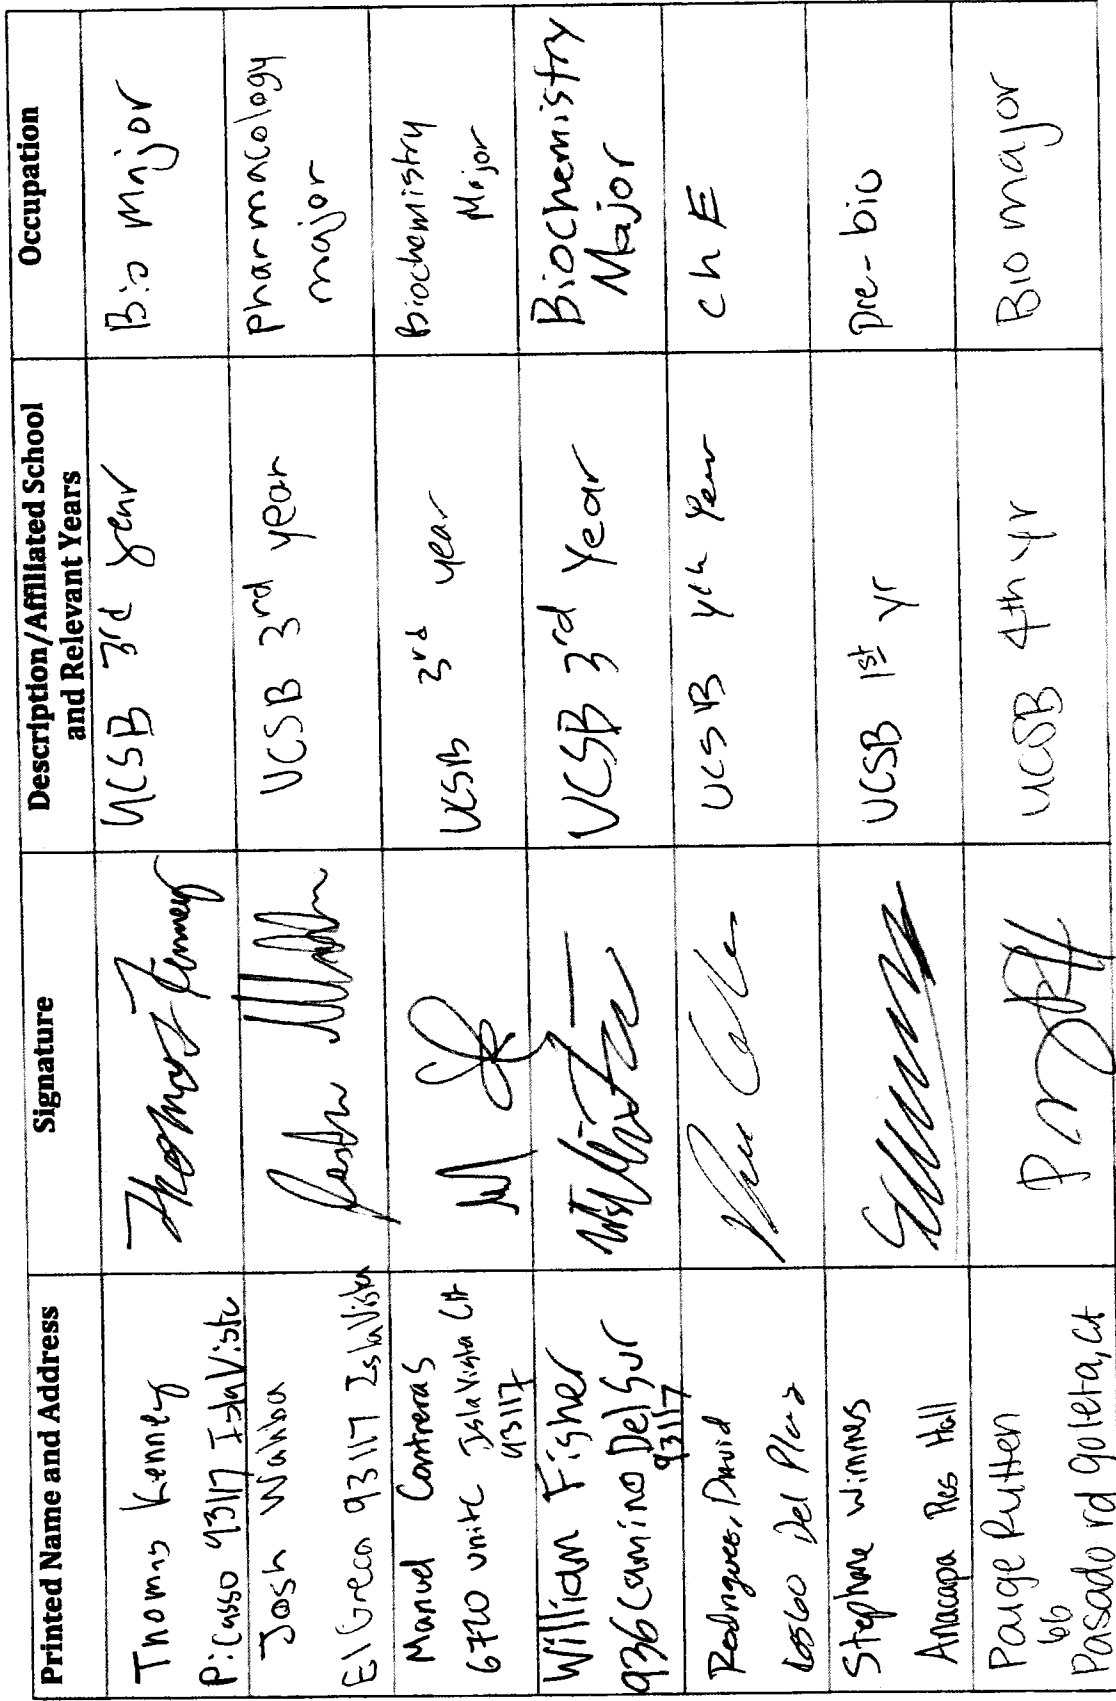 Printed Name and Address
Signature
Description/Affiliated School
and Relevant Years
Occupation
Thomas Kenney
Picasso 93117 Isla Vista
Thomas Kenney
UCSB 3rd year
Bio Major
Josh Wahba
El Greco 93117 Isla Vista
UCSB 3rd year
Pharmacology
major
Manuel Contreras
6720 unit C Isla Vista CA
93117
UCSB 3rd year
Biochemistry
Major
William Fisher
936 Camino Del Sur
93117
UCSB 3rd Year
Biochemistry
Major
Rodriguez, David
Del Playa
UCSB 4th Year
ChE
Stephane Wimmes
Anacapa Res Hall
UCSB 1st yr
pre-bio
Paige Rutten
66
Pasado rd goleta, CA
UCSB 4th yr
Bio major